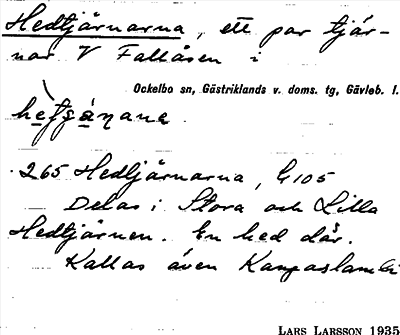 Hedtjärnarna, ett par tjär-
nar V Fallåsen i
Ockelbo sn, Gästriklands v. doms. tg, Gävleb. l.
265 Hedtjärnarna, G105
Delas i Stora och Lilla
Hedtjärnen. En hed där.
Kallas även Kangaslambi
LARS LARSSON 1935